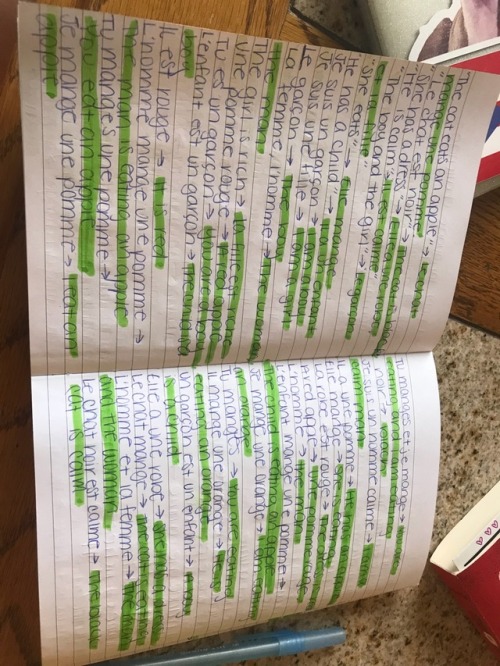 "The cat eats an apple" → le chat
mange une pomme
chat est noir" → the cat is black
"She has a dress" → elle a une robe
"He is calm" → il est calme
"The boy and the girl" → le garçon
et la fille
"She eats" → elle mange
He has a child → il a un enfant
Je suis un garçon → I am a boy
Je suis une fille → I am a girl
Le garçon → the boy
La femme / l'homme → the woman
the man
The girl is rich → la fille est riche
une pomme rouge → a red apple
Tu es un garçon → You are a boy
L'enfant est un garçon → the child is a
boy
Il est rouge → It is red
L'homme mange une pomme →
The man is eating an apple
Tu manges une pomme →
You eat an apple
Je mange une pomme → I eat an
apple
Tu manges et je mange →
eating and I am eating
Je suis un homme calme →
calm man
Il a une pomme →
est rouge →
red apple → une pomme rouge
l'homme → the man
L'enfant mange une pomme →
the child is eating an apple
Je mange une orange → I am eating
an orange
Tu manges → You are eating
Il mange une orange → He is
eating an orange
Un garçon est un enfant → A boy
is a child
Elle a une robe → She has a dress
Le chat mange → The cat eats
L'homme et la femme → The man
and the woman
Le chat noir est calme → The black
cat is calm